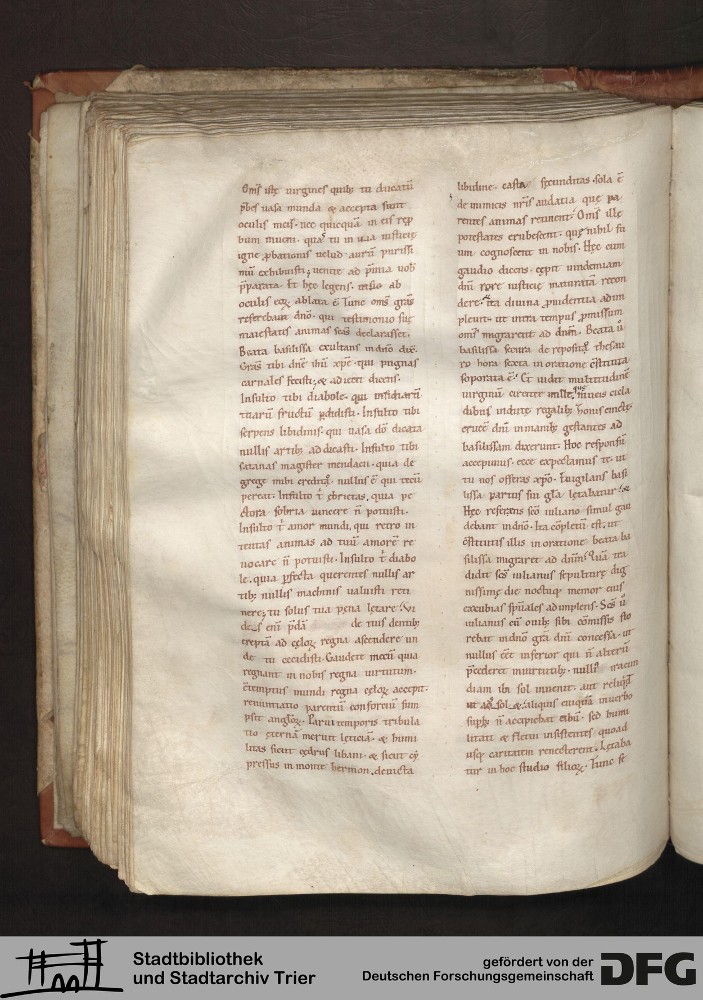 Oms iste virgines quib; tu ducatū
p̄bes vasa munda & accepta sunt
oculis meis. nec quicquā in eis rep
bum inveni. quas tu in via iusticie
igne ꝓbationis velud aurū purissi
mū exhibuisti; venite ad p̄mia vob
p̄parata. Et hec legens. visio ab
oculis eoꝝ ablata ē. Tunc oms gras
referebant dno. qui testimonio sue
maiestatis animas scas declarasset.
Beata basilissa exultans in dno dix.
Gras tibi dne ihu xpe. qui pugnas
carnales fecisti; & adiecit dicens.
Insulto tibi diabole. qui insidiarū
tuarū fructū ꝑdidisti. Insulto tibi
serpens libidinis. qui vasa do dicata
nullis artib; addicasti. Insulto tibi
satanas magister mendacii. quia de
grege mihi credito. nullus ē qui tecū
pereat. Insulto t ebrietas. quia pe
ctora sobria vincere n potuisti.
Insulto t amor mundi. qui retro in
tentas animas ad tuū amorē re
vocare n potuisti. Insulto t diabo
le. quia ꝑfecta querentes nullis ar
tib; nullis machinis valuisti reti
nere; tu solus tua pena letare.
de tuis dentib;
creptā ad celoꝝ regna ascendere un
de tu cecidisti. Gaudete mecū quia
regnant in nobis regna virtutum.
cōtemptus mundi regna celoꝝ accepit.
renuntiatio parentū consorciū sum
psit angloꝝ. Parvi temporis tribula
tio eternā meruit leticiā. & humi
litas sicut cedrus libani. & sicut cy
pressus in monte hermon. devicta
libidine. casta fecunditas. sola ē
de inimicis nris audatia que pa
rentes animas retinent. Oms ille
potestates erubescent. que nihil su
um cognoscent in nobis. Hec cum
gaudio dicens. cepit vindemiam
dni rore iusticie maturatā recon
dere. ita divina ꝓvidentia adim
plevit. ut intra tempus ꝓmissum
oms migrarent ad dnm. Beata v
basilissa secura de reposito thesau
ro hora sexta in oratione cōstituta
soporata ē. Et vidit multitudinē
virginū circiter mille, niveis ciela
dibus indutas regalib; honis cinctas
crucē dni in manib; gestantes ad
basilissam dixerunt. Hoc responsū
accepimus. ecce expectamus te. ut
tu nos offeras xpo. Evigilans basi
lissa partus sui gla letabatur.
Hec referens sco iuliano simul gau
debant in dno. Ita cōpletū est. ut
cōstitutis illis in oratione beata ba
silissa migraret ad dnm. Quā tra
didit scs iulianus sepulture dig
nissime die noctuq; memor eius
excubias spuales adimplens. Scs v
iulianus cū omib; sibi cōmissis sto
rebat in dno gra dni concessa. ut
nullus eēt inferior qui n alterū
p̄cederet in virtutib;. nullus iracun
diam ibi sol invenit. aut reliqd
ut ad sol & aliquis cuiquā in verbo
supbo n accipiebat cibū. sed humi
litati & fletui insistentes. quoad
usq; caritatem renecterent. Letaba
tur in hoc studio filioꝝ. Tunc se
Stadtbibliothek
und Stadtarchiv Trier
gefördert von der
Deutschen Forschungsgemeinschaft
DFG